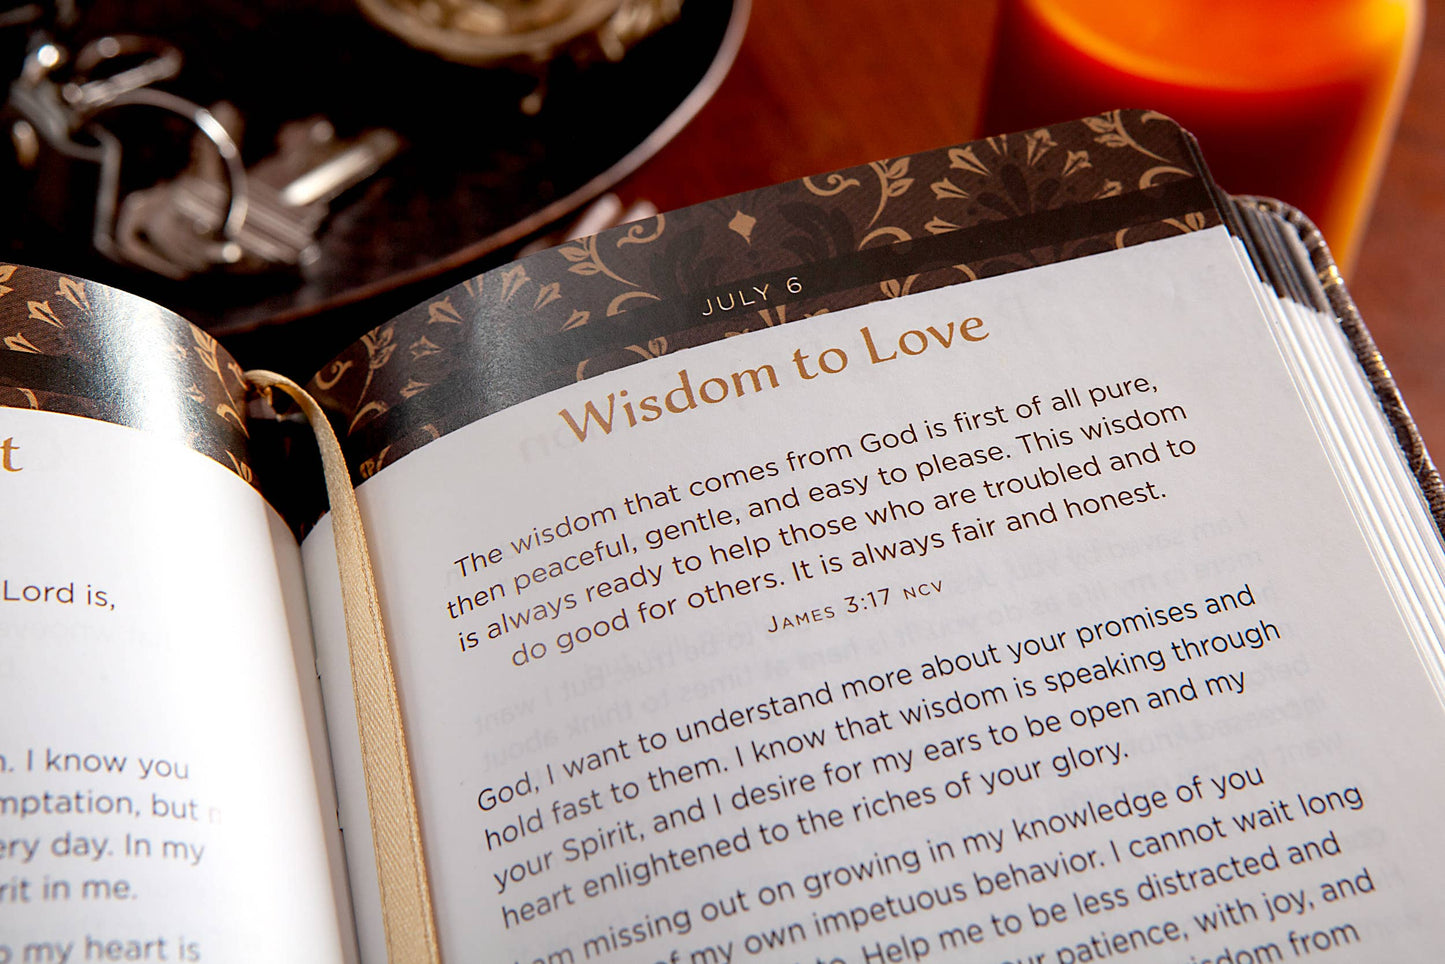 t
Lord is,
. I know you
mptation, but
ery day. In my
rit in me.
my heart is
JULY 6
Wisdom to Love
The wisdom that comes from God is first of all pure,
then peaceful, gentle, and easy to please. This wisdom
is always ready to help those who are troubled and to
do good for others. It is always fair and honest.
JAMES 3:17 NCV
God, I want to understand more about your promises and
hold fast to them. I know that wisdom is speaking through
your Spirit, and I desire for my ears to be open and my
heart enlightened to the riches of your glory.
am missing out on growing in my knowledge of you
of my own impetuous behavior. I cannot wait long
Help me to be less distracted and
ur patience, with joy, and
wisdom from